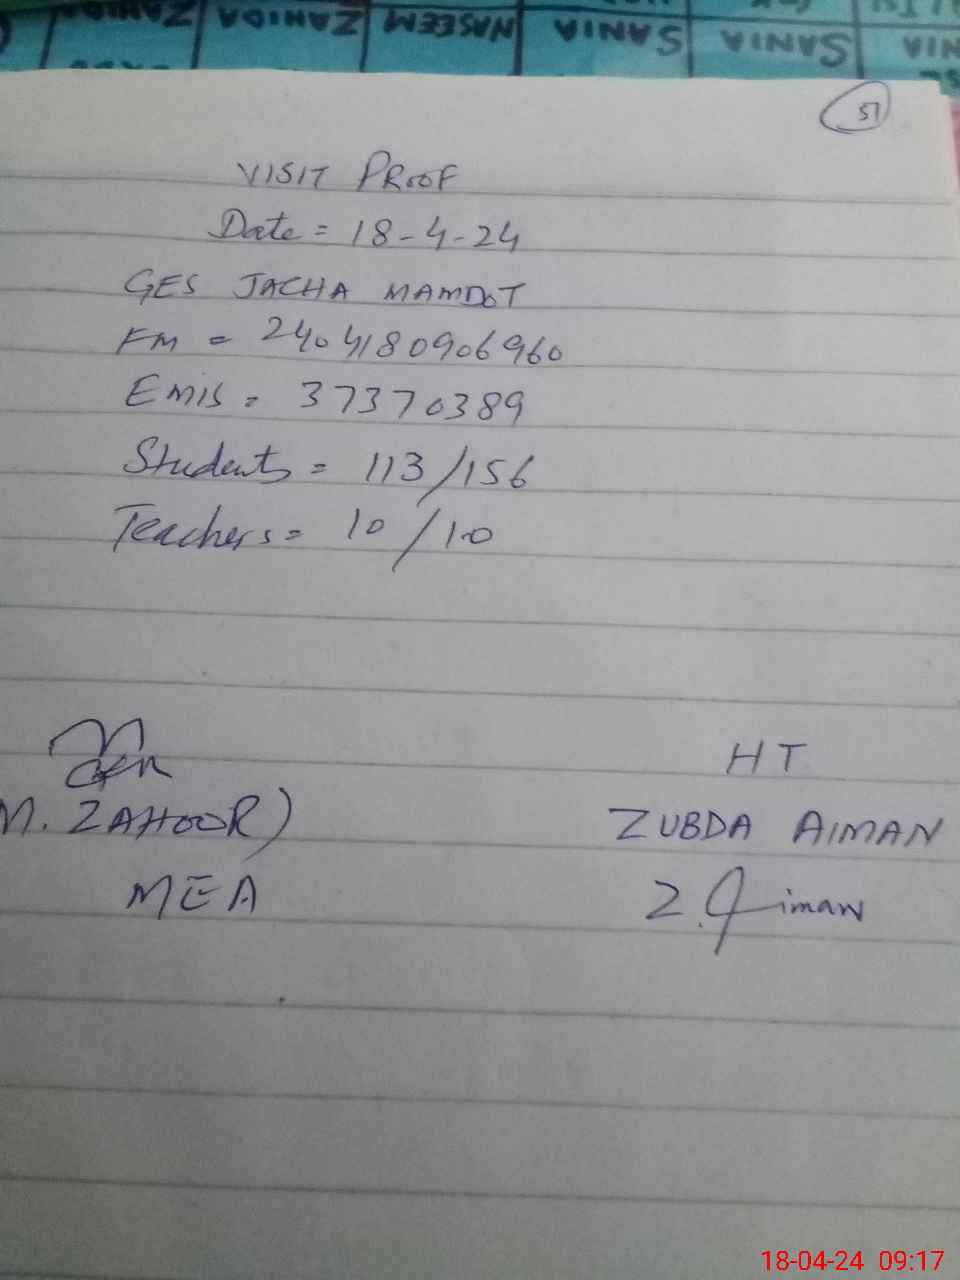 ZAHIDA ZAHIDA NASEEM SANIA SANIA
51
VISIT PROOF
Date = 18-4-24
GES JACHA MAMDOT
FM = 2404180906960
EMIS = 37370389
Students = 113/156
Teachers = 10/10
M. ZAHOOR)
MEA
HT
ZUBDA AIMAN
Z. Aiman
18-04-24 09:17